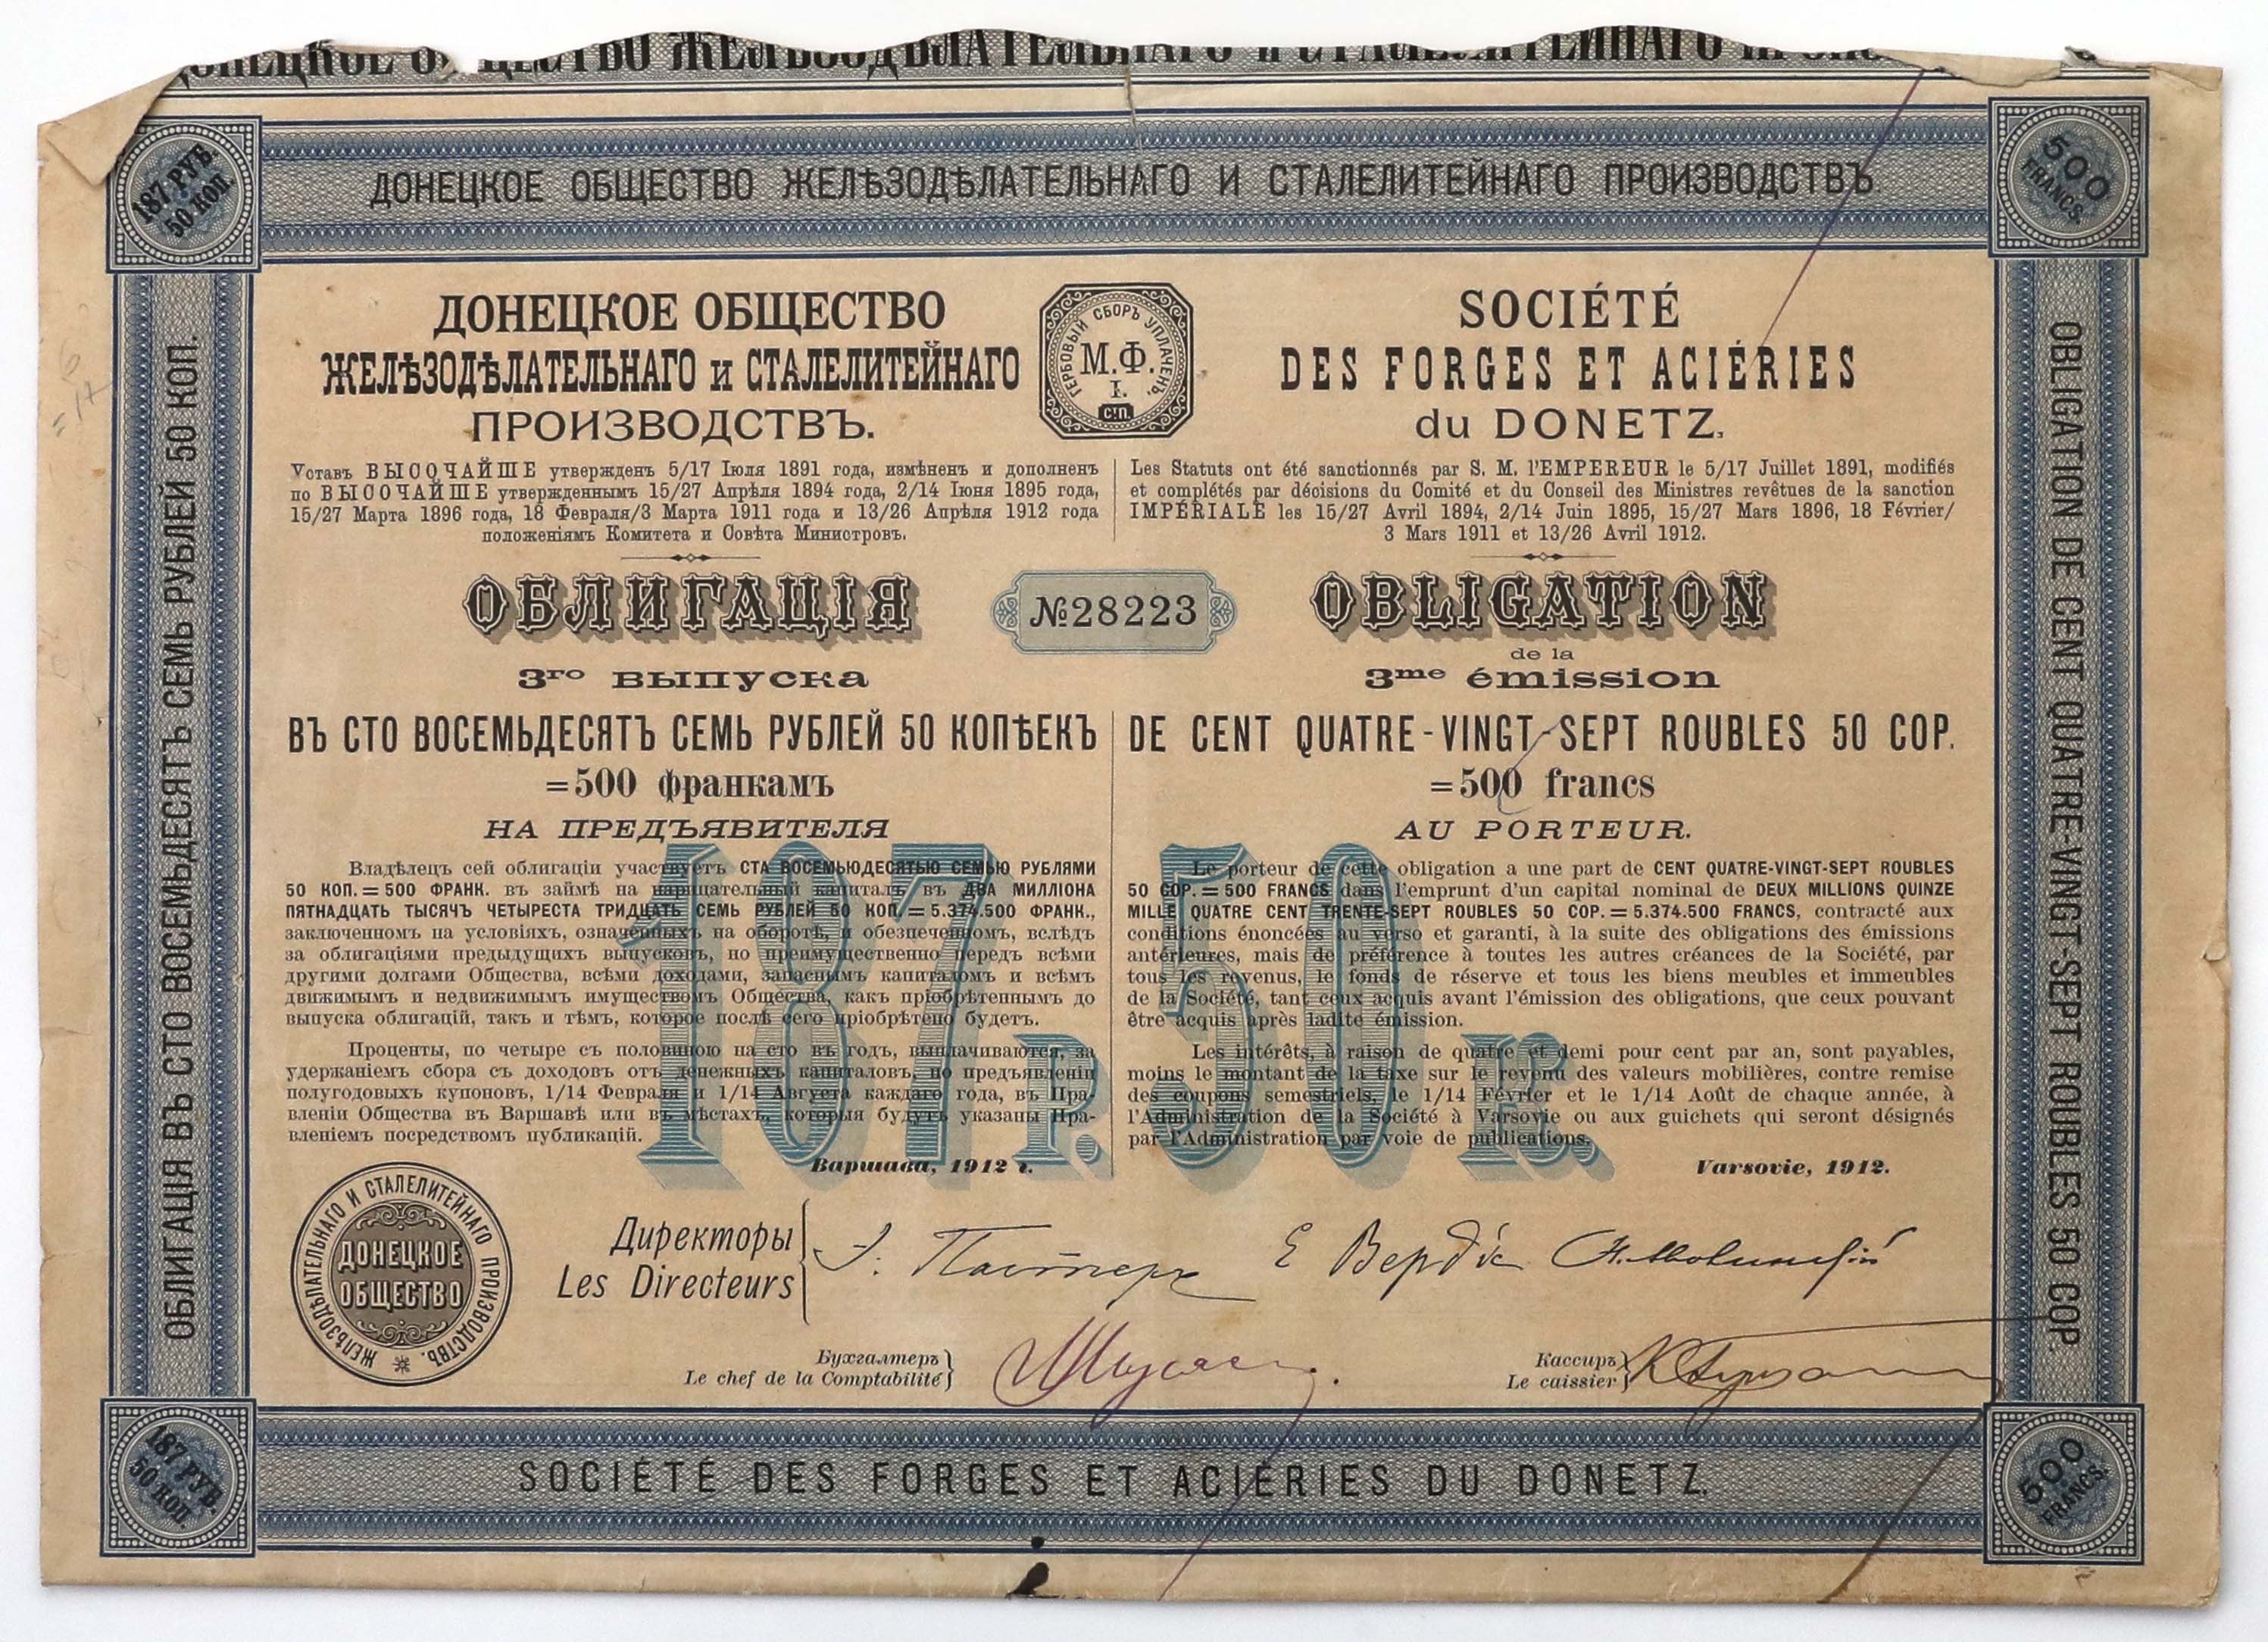 ДОНЕЦКОЕ ОБЩЕСТВО ЖЕЛѢЗОДѢЛАТЕЛЬНАГО И СТАЛЕЛИТЕЙНАГО ПРОИЗВОДСТВЪ.
187 РУБ.
50 КОП.
500
FRANCS.
ДОНЕЦКОЕ ОБЩЕСТВО
ЖЕЛѢЗОДѢЛАТЕЛЬНАГО и СТАЛЕЛИТЕЙНАГО
ПРОИЗВОДСТВЪ.
ГЕРБОВЫЙ СБОРЪ УПЛАЧЕНЪ.
М.Ф.
I.
СТП.
SOCIÉTÉ
DES FORGES ET ACIÉRIES
du DONETZ.
Уставъ ВЫСОЧАЙШЕ утвержденъ 5/17 Іюля 1891 года, измѣненъ и дополненъ
по ВЫСОЧАЙШЕ утвержденнымъ 15/27 Апрѣля 1894 года, 2/14 Іюня 1895 года,
15/27 Марта 1896 года, 18 Февраля/3 Марта 1911 года и 13/26 Апрѣля 1912 года
положеніямъ Комитета и Совѣта Министровъ.
Les Statuts ont été sanctionnés par S. M. l'EMPEREUR le 5/17 Juillet 1891, modifiés
et complétés par décisions du Comité et du Conseil des Ministres revêtues de la sanction
IMPÉRIALE les 15/27 Avril 1894, 2/14 Juin 1895, 15/27 Mars 1896, 18 Février/
3 Mars 1911 et 13/26 Avril 1912.
ОБЛИГАЦІЯ
№28223
OBLIGATION
de la
3го выпуска
3me émission
ВЪ СТО ВОСЕМЬДЕСЯТЪ СЕМЬ РУБЛЕЙ 50 КОПѢЕКЪ
=500 франкамъ
НА ПРЕДЪЯВИТЕЛЯ
DE CENT QUATRE-VINGT-SEPT ROUBLES 50 COP.
=500 francs
AU PORTEUR.
187 Р. 50 К.
Владѣлецъ сей облигаціи участвуетъ СТА ВОСЕМЬЮДЕСЯТЬЮ СЕМЬЮ РУБЛЯМИ
50 КОП.=500 ФРАНК. въ займѣ на нарицательный капиталъ въ ДВА МИЛЛІОНА
ПЯТНАДЦАТЬ ТЫСЯЧЪ ЧЕТЫРЕСТА ТРИДЦАТЬ СЕМЬ РУБЛЕЙ 50 КОП.=5.374.500 ФРАНК.,
заключенномъ на условіяхъ, означенныхъ на оборотѣ, и обезпеченномъ, вслѣдъ
за облигаціями предыдущихъ выпусковъ, но преимущественно передъ всѣми
другими долгами Общества, всѣми доходами, запаснымъ капиталомъ и всѣмъ
движимымъ и недвижимымъ имуществомъ Общества, какъ пріобрѣтеннымъ до
выпуска облигацій, такъ и тѣмъ, которое послѣ сего пріобрѣтено будетъ.
Проценты, по четыре съ половиною на сто въ годъ, выплачиваются, за
удержаніемъ сбора съ доходовъ отъ денежныхъ капиталовъ, по предъявленіи
полугодовыхъ купоновъ, 1/14 Февраля и 1/14 Августа каждаго года, въ Пра-
вленіи Общества въ Варшавѣ или въ мѣстахъ, которыя будутъ указаны Пра-
вленіемъ посредствомъ публикацій.
Варшава, 1912 г.
Le porteur de cette obligation a une part de CENT QUATRE-VINGT-SEPT ROUBLES
50 COP.=500 FRANCS dans l'emprunt d'un capital nominal de DEUX MILLIONS QUINZE
MILLE QUATRE CENT TRENTE-SEPT ROUBLES 50 COP.=5.374.500 FRANCS, contracté aux
conditions énoncées au verso et garanti, à la suite des obligations des émissions
antérieures, mais de préférence à toutes les autres créances de la Société, par
tous les revenus, le fonds de réserve et tous les biens meubles et immeubles
de la Société, tant ceux acquis avant l'émission des obligations, que ceux pouvant
être acquis après ladite émission.
Les intérêts, à raison de quatre et demi pour cent par an, sont payables,
moins le montant de la taxe sur le revenu des valeurs mobilières, contre remise
des coupons semestriels, le 1/14 Février et le 1/14 Août de chaque année, à
l'Administration de la Société à Varsovie ou aux guichets qui seront désignés
par l'Administration par voie de publications.
Varsovie, 1912.
ЖЕЛѢЗОДѢЛАТЕЛЬНАГО И СТАЛЕЛИТЕЙНАГО ПРОИЗВОДСТВЪ.
ДОНЕЦКОЕ
ОБЩЕСТВО
Директоры
Les Directeurs
Бухгалтеръ
Le chef de la Comptabilité
Кассиръ
Le caissier
ОБЛИГАЦІЯ ВЪ СТО ВОСЕМЬДЕСЯТЪ СЕМЬ РУБЛЕЙ 50 КОП.
OBLIGATION DE CENT QUATRE-VINGT-SEPT ROUBLES 50 COP.
187 РУБ.
50 КОП.
SOCIÉTÉ DES FORGES ET ACIÉRIES DU DONETZ.
500
FRANCS.